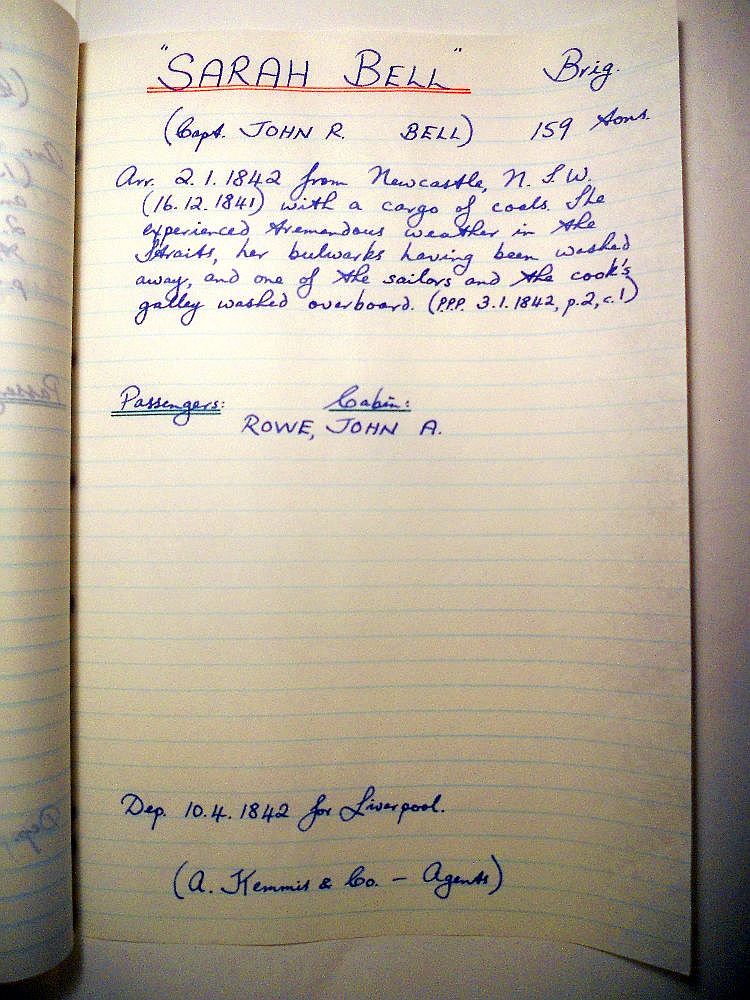 "SARAH BELL" Brig.
(Capt. JOHN R. BELL) 159 tons.
Arr. 2.1.1842 from Newcastle, N.S.W.
(16.12.1841) with a cargo of coals. She
experienced tremendous weather in the
Straits, her bulwarks having been washed
away, and one of the sailors and the cook's
galley washed overboard. (P.P.P. 3.1.1842, p.2, c.1)
Passengers: Cabin:
ROWE, JOHN A.
Dep. 10.4.1842 for Liverpool.
(A. Kemmis & Co. - Agents)